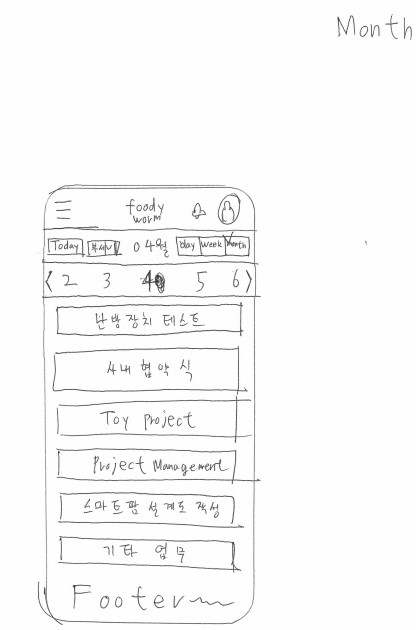 Month
foody
worm
Today 부서 04월 day week Month
< 2 3 4 5 6 >
난방장치 테스트
사내 협약식
Toy project
Project Management
스마트팜 설계도 작성
기타 업무
Footer